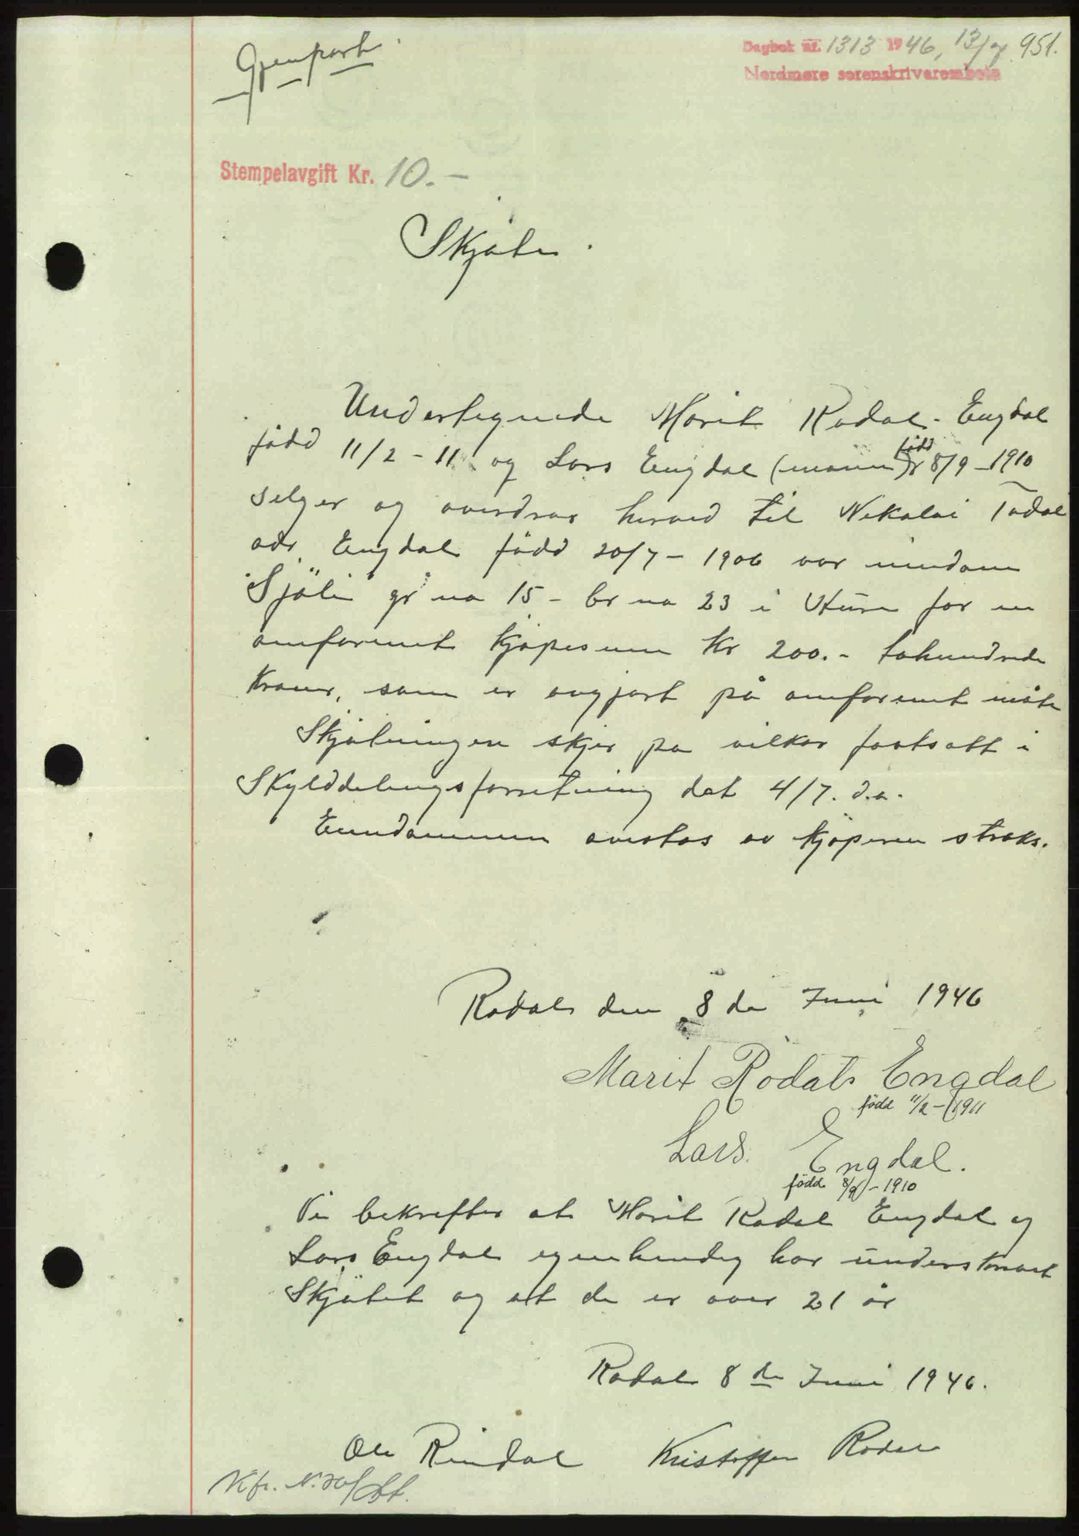 Gjenpart.
Dagbok nr. 1313 1946, 13/7 951.
Nordmøre sorenskriverembete
Stempelavgift Kr. 10.-
Skjøte.
Undertegnede Marit Rodal-Engdal
född 11/2-11 og Lars Engdal (mann) född 8/9-1910
selger og overdrar herved til Nikolai Todal
adr. Engdal född 20/7-1906 vor eindom
"Sjöli" gr no 15- br no 23 i Sture for en
omforent kjøpesum Kr 200.- tohundrede
kroner, som er avgjort på omforent måte
Skjøtningen skjer på vilkår fastsatt i
Skylddelingsforretning dat 4/7. d.a.
Eiendommen overtas av kjøperen straks.
Rodal den 8 de Juni 1946
Marit Rodals Engdal
född 11/2-1911
Lars Engdal.
född 8/9-1910
Vi bekrefter at Marit Rodal Engdal og
Lars Engdal egenhendig har underskrevet
Skjøtet og at de er over 21 år
Rodal 8 de Juni 1946.
Ole Rindal Kristoffer Rodal